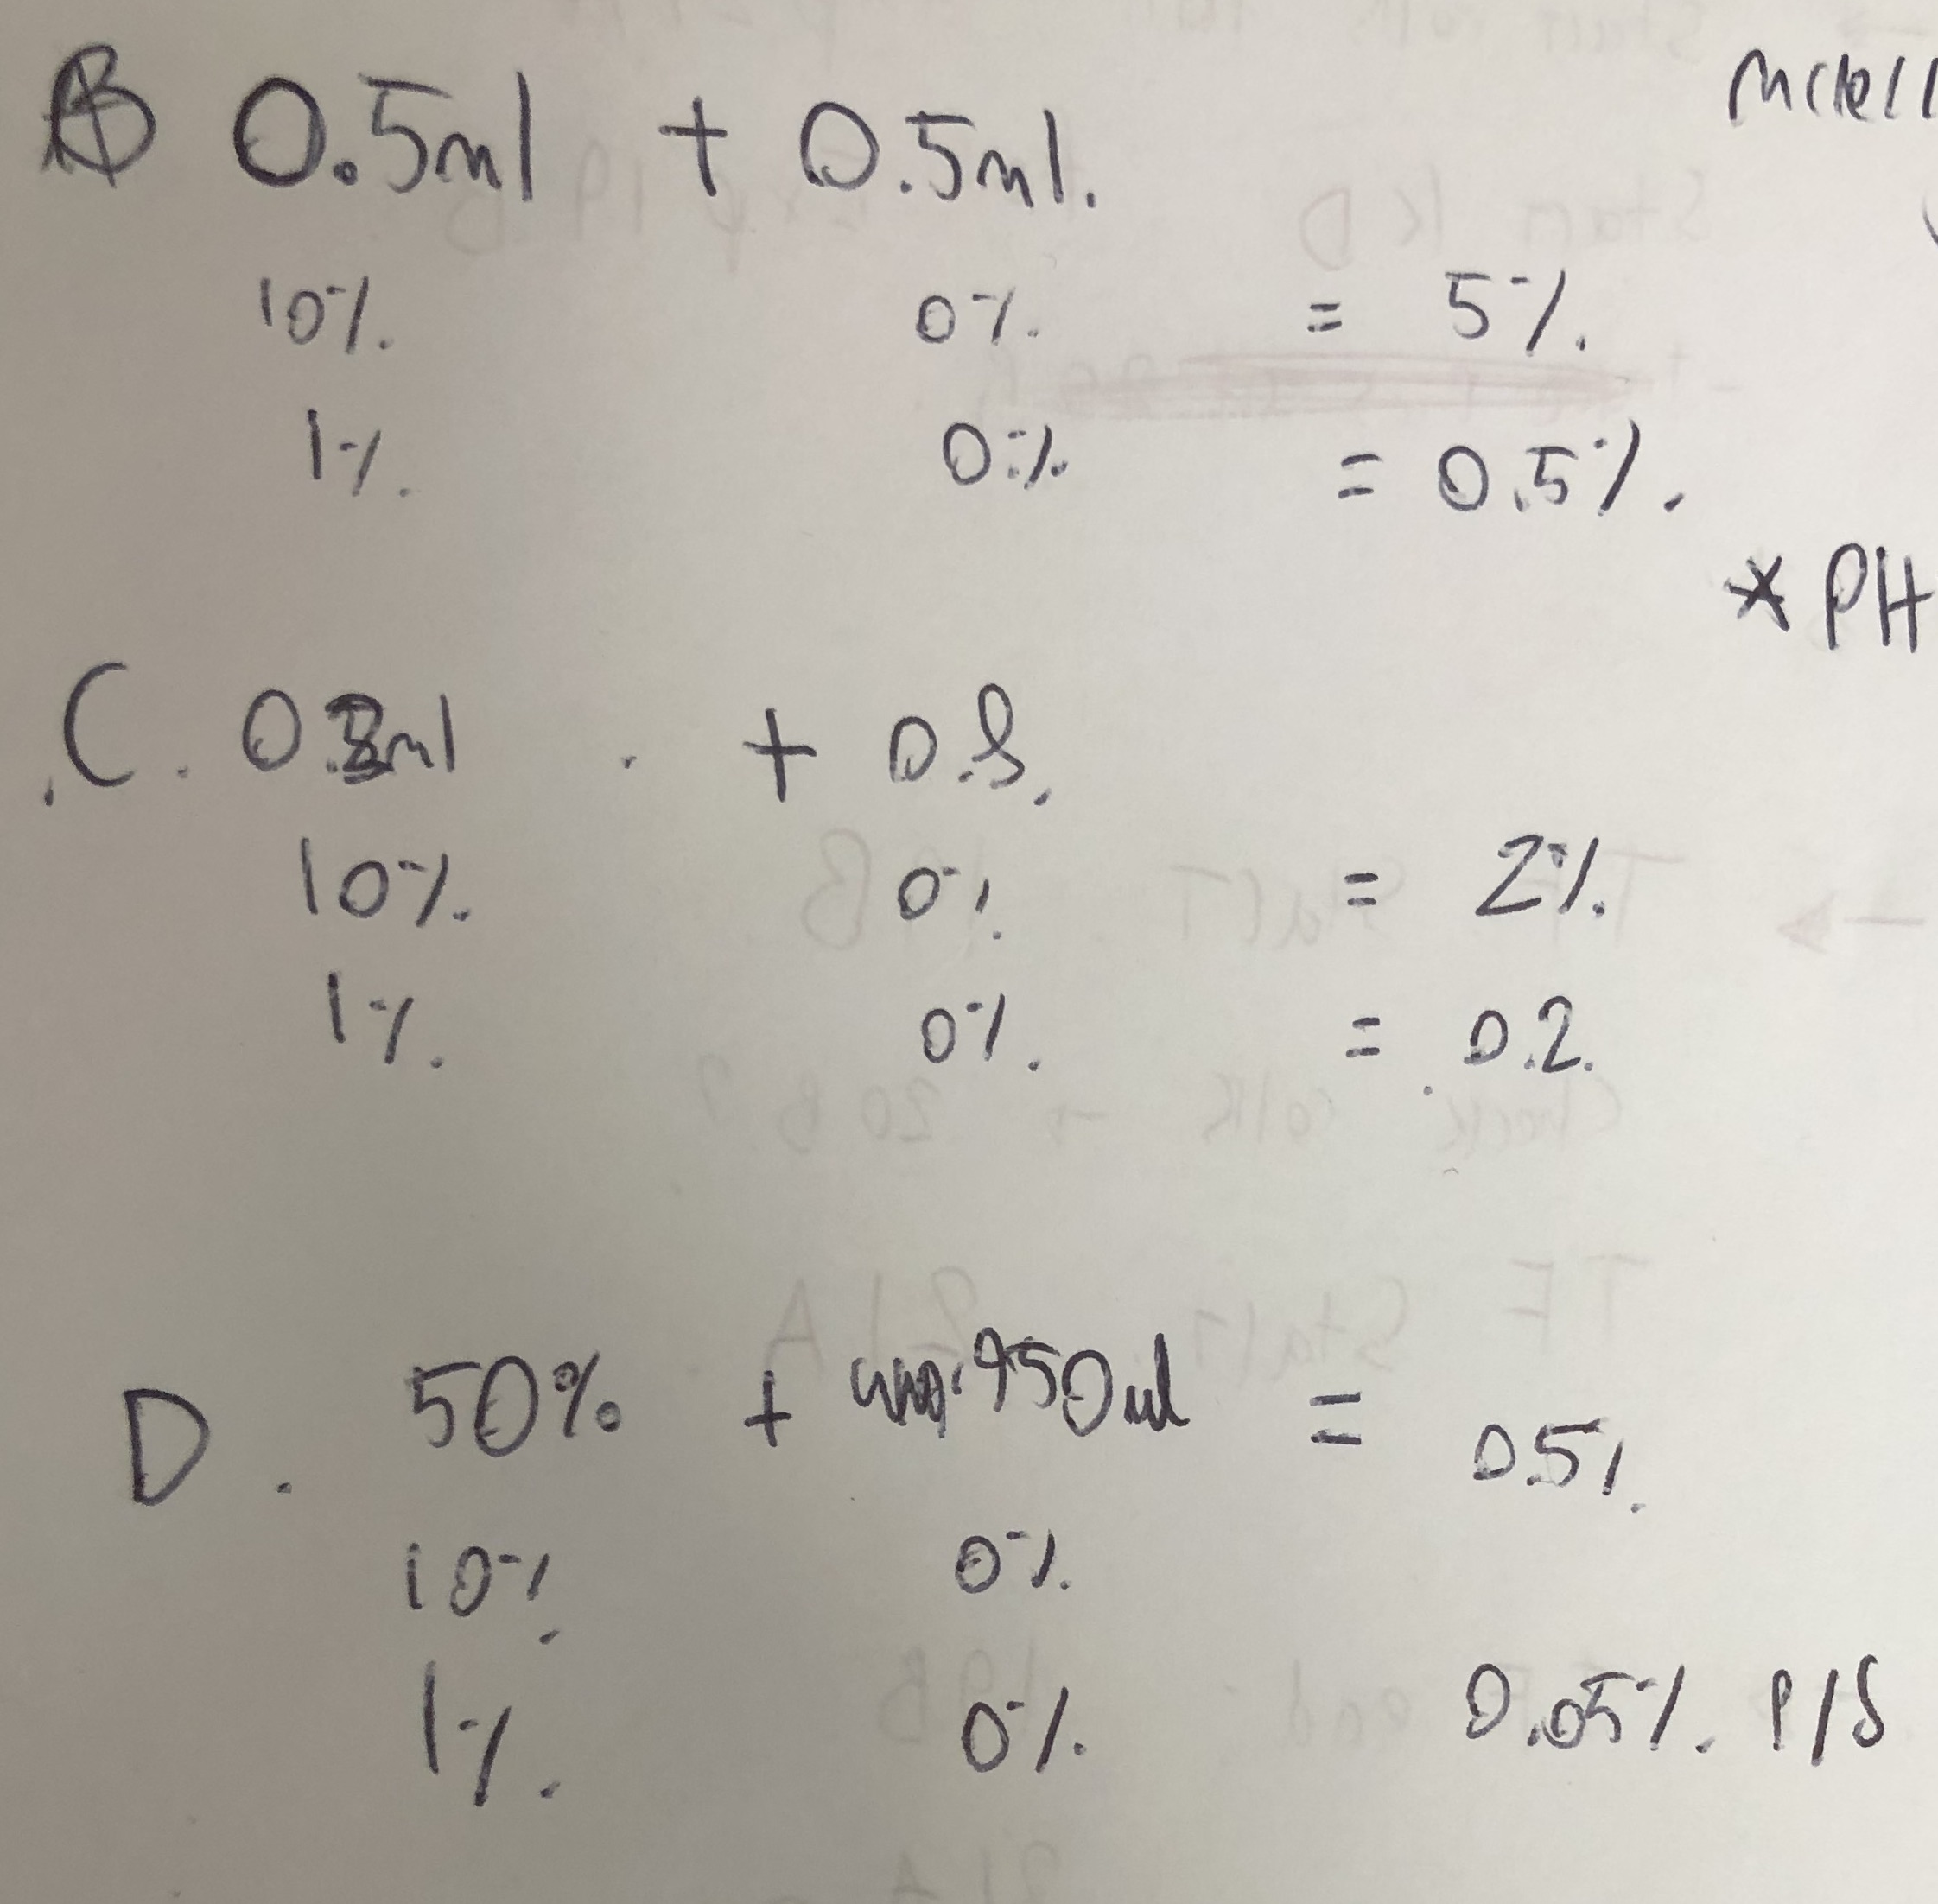 B 0.5ml + 0.5ml.
10% 0% = 5%.
1% 0% = 0.5%.
* PH
C. 0.2ml + 0.8.
10% 0% = 2%.
1% 0% = 0.2.
D. 50% + 950ul = 0.5%.
10% 0%
1% 0% 0.05% P/S